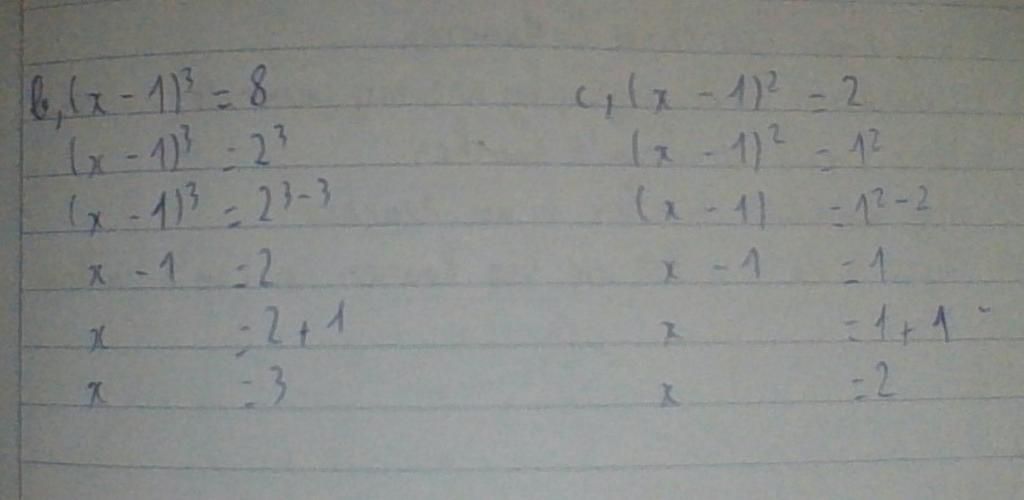 b, (x - 1)³ = 8
(x - 1)³ = 2³
(x - 1)³ = 2³⁻³
x - 1 = 2
x = 2 + 1
x = 3
c, (x - 1)² = 2
(x - 1)² = 1²
(x - 1) = 1²⁻²
x - 1 = 1
x = 1 + 1
x = 2